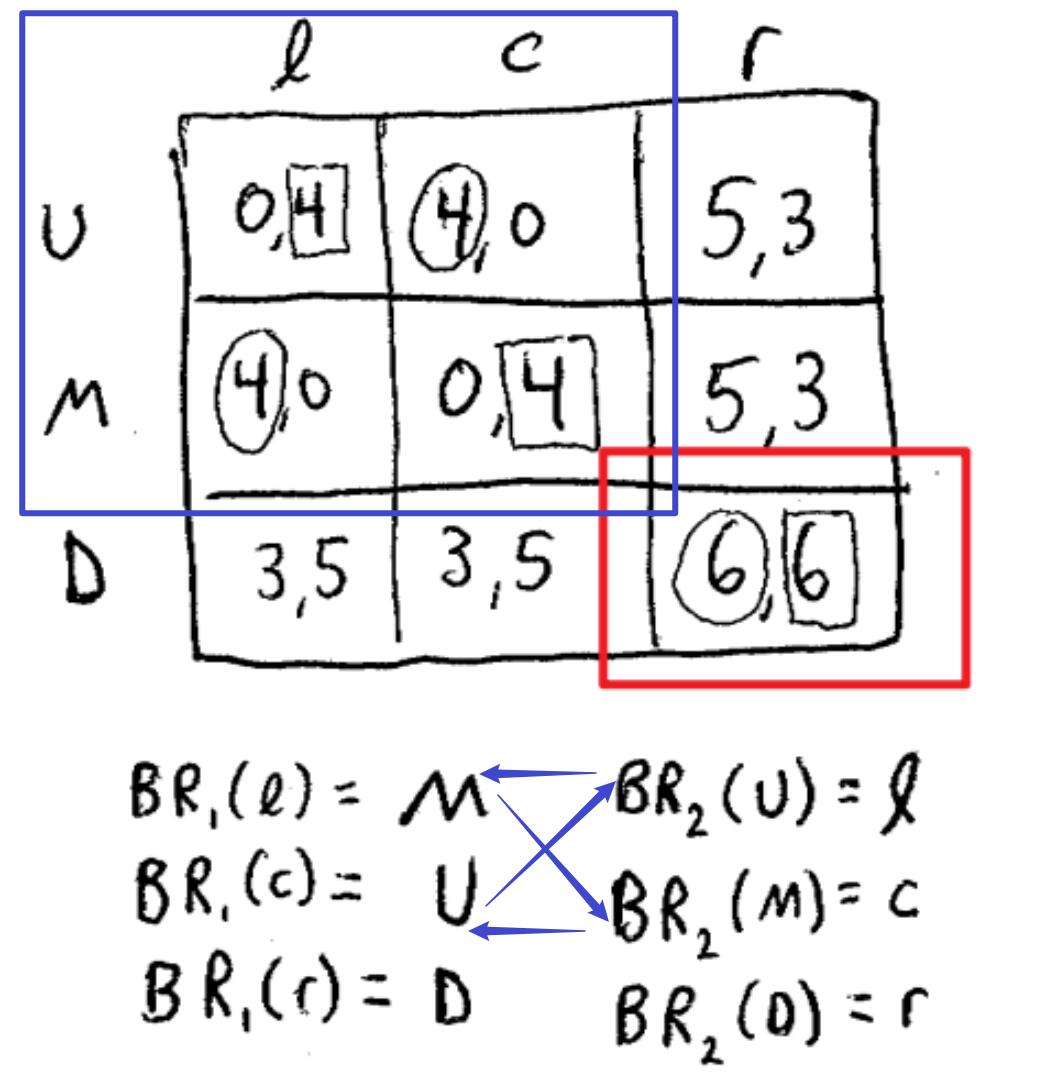 l c r
U 0,4 4,0 5,3
M 4,0 0,4 5,3
D 3,5 3,5 6,6
BR₁(l) = M BR₂(U) = l
BR₁(c) = U BR₂(M) = c
BR₁(r) = D BR₂(D) = r